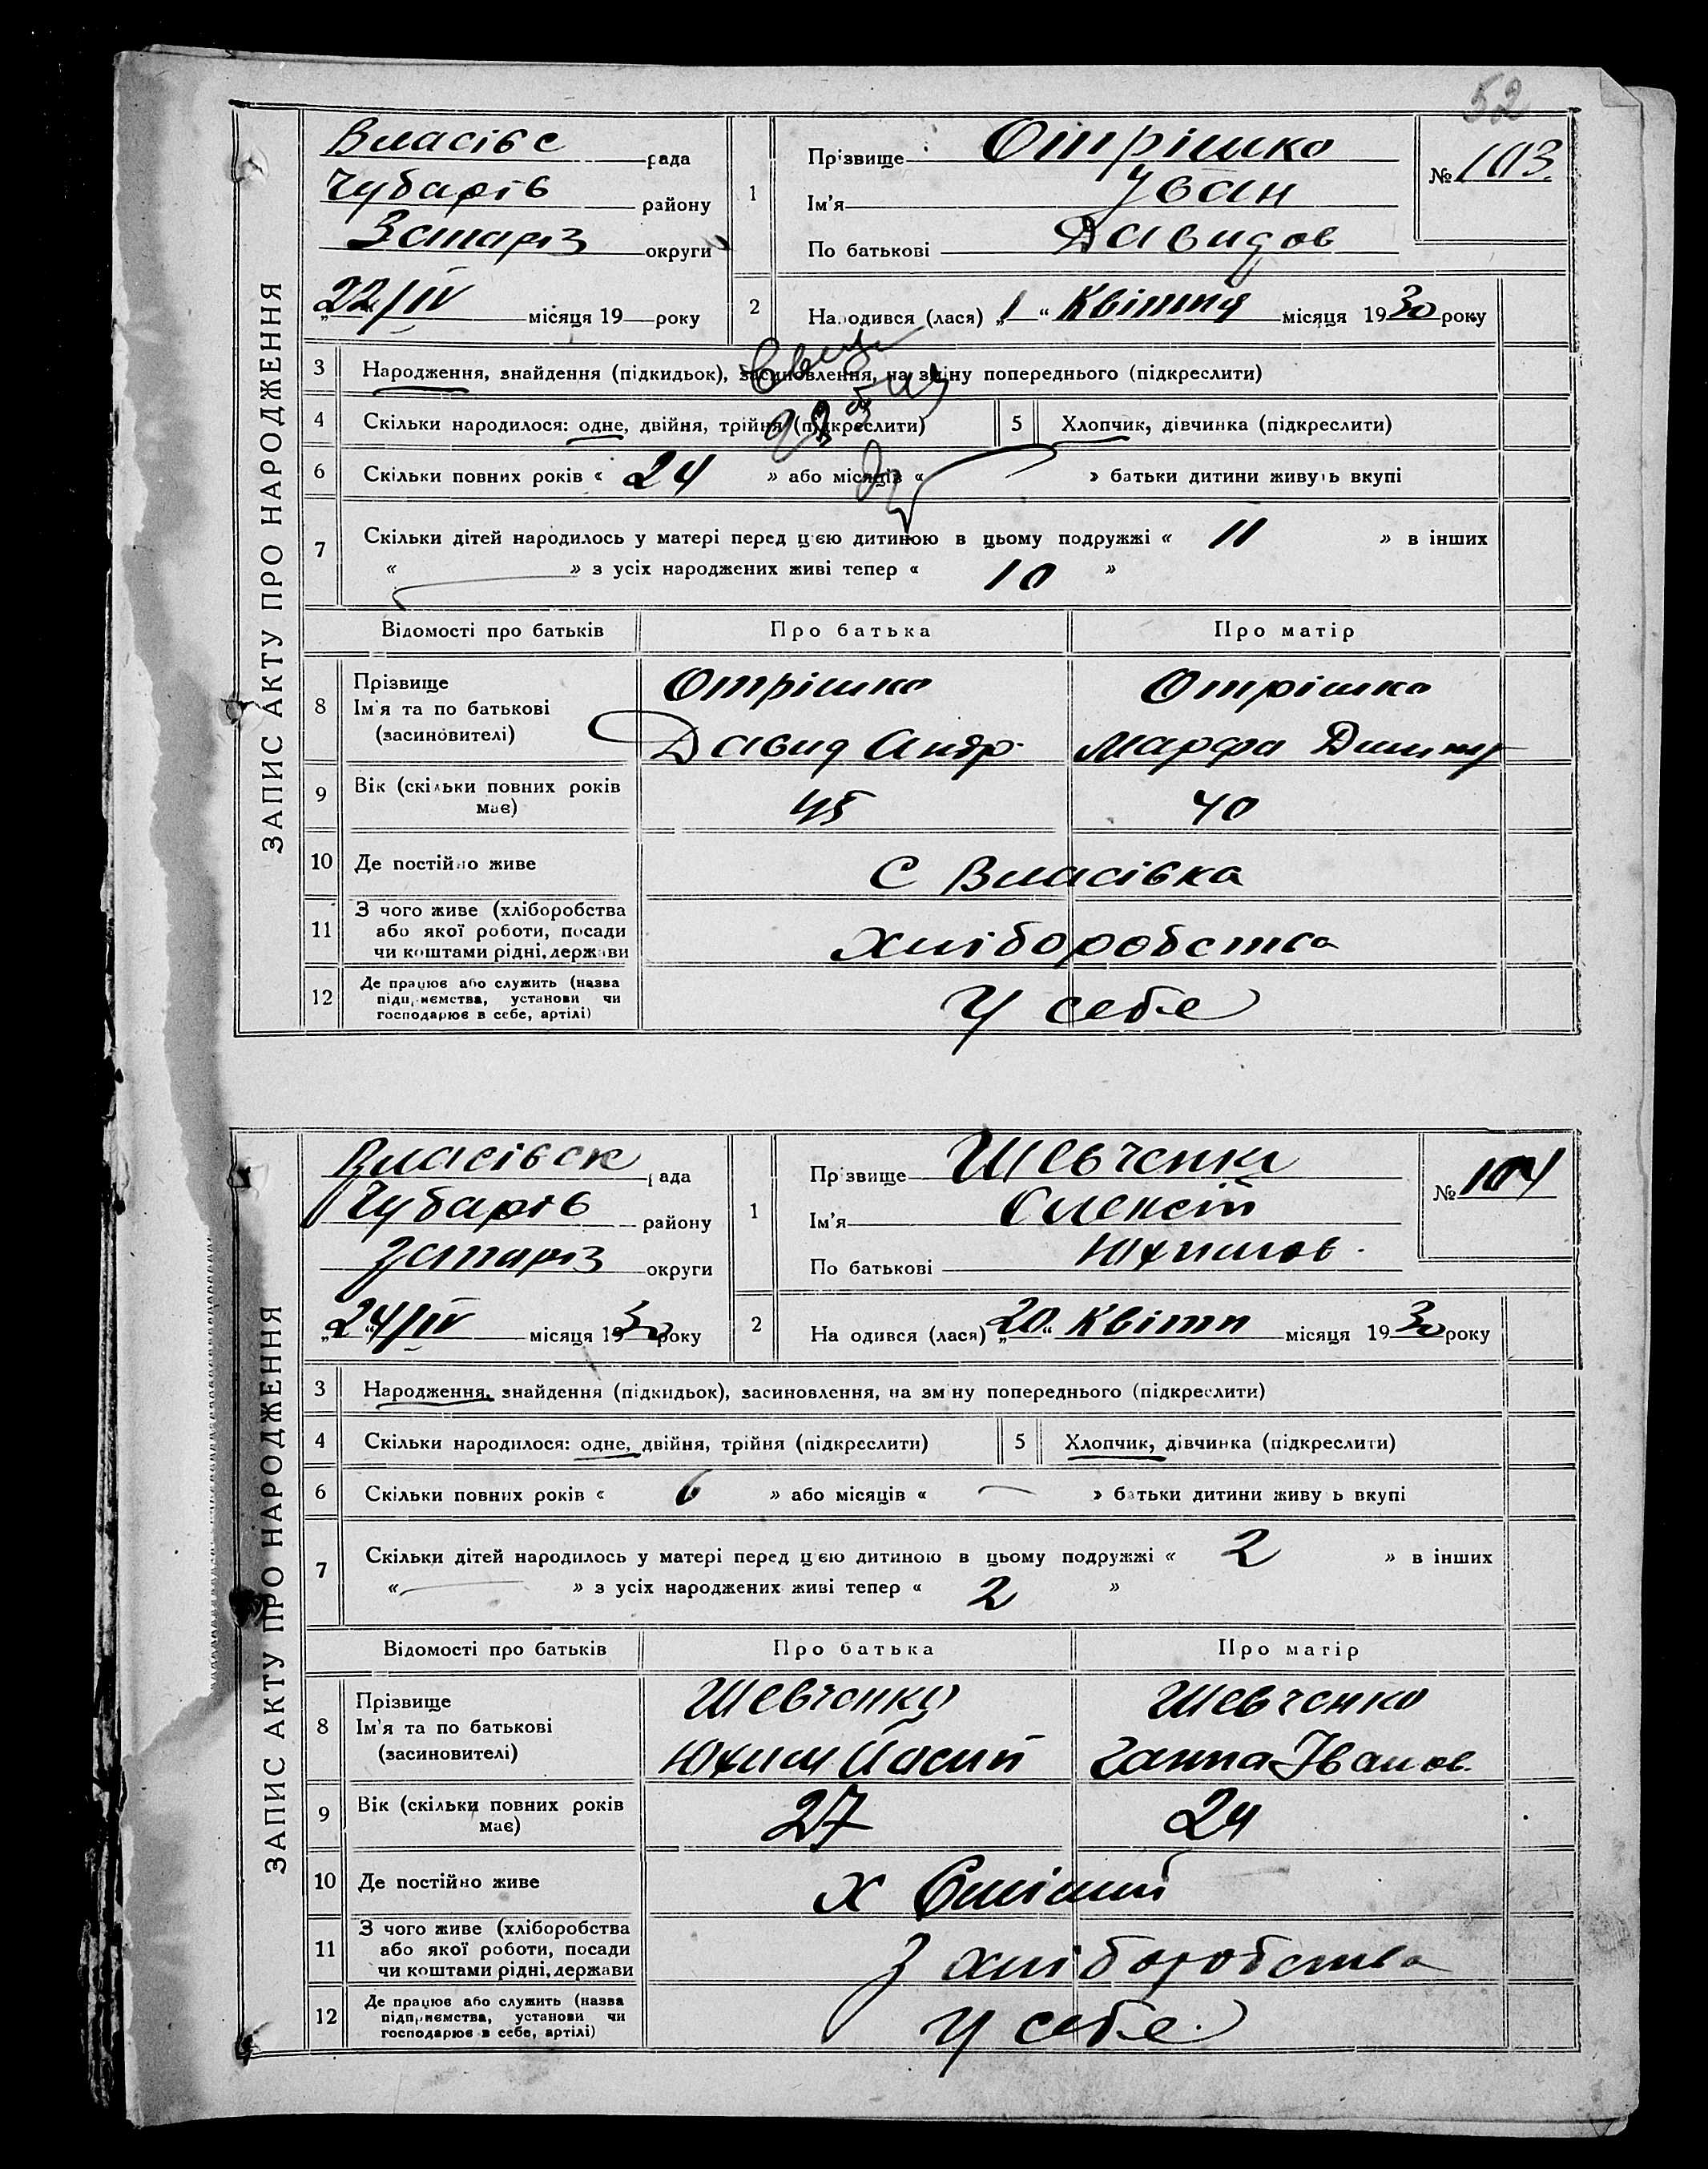 52
ЗАПИС АКТУ ПРО НАРОДЖЕННЯ
Власівс рада
Чубарів району
Запоріз округи
„22“/IV місяця 19 року
1 Прізвище Отрішко
Ім'я Іван
По батькові Давидов
№ 103.
2 Народився (лася) „1“ Квітня місяця 1930 року
3 Народження, знайдення (підкидьок), засиновлення, на зміну попереднього (підкреслити)
4 Скільки народилося: одне, двійня, трійня (підкреслити) 5 Хлопчик, дівчинка (підкреслити)
6 Скільки повних років « 24 » або місяців « — » батьки дитини живуть вкупі
7 Скільки дітей народилось у матері перед цією дитиною в цьому подружжі « 11 » в інших
« — » з усіх народжених живі тепер « 10 »
Відомості про батьків Про батька Про матір
8 Прізвище
Ім'я та по батькові
(засиновителі)
Отрішко
Давид Андр.
Отрішко
Марфа Дмитр
9 Вік (скільки повних років
має)
45 40
10 Де постійно живе С Власівка
11 З чого живе (хліборобства
або якої роботи, посади
чи коштами рідні, держави
хліборобства
12 Де працює або служить (назва
підприємства, установи чи
господарює в себе, артілі)
У себе
ЗАПИС АКТУ ПРО НАРОДЖЕННЯ
Власівск рада
Чубарів району
Запоріз округи
„24“/IV місяця 1930 року
1 Прізвище Шевченко
Ім'я Олексій
По батькові Юхимов.
№ 104
2 Народився (лася) „20“ Квітн місяця 1930 року
3 Народження, знайдення (підкидьок), засиновлення, на зміну попереднього (підкреслити)
4 Скільки народилося: одне, двійня, трійня (підкреслити) 5 Хлопчик, дівчинка (підкреслити)
6 Скільки повних років « 6 » або місяців « — » батьки дитини живуть вкупі
7 Скільки дітей народилось у матері перед цією дитиною в цьому подружжі « 2 » в інших
« — » з усіх народжених живі тепер « 2 »
Відомості про батьків Про батька Про матір
8 Прізвище
Ім'я та по батькові
(засиновителі)
Шевченко
Юхим
Шевченко
Ганна Іванов.
9 Вік (скільки повних років
має)
27 24
10 Де постійно живе х
11 З чого живе (хліборобства
або якої роботи, посади
чи коштами рідні, держави
З хліборобства
12 Де працює або служить (назва
підприємства, установи чи
господарює в себе, артілі)
У себе.